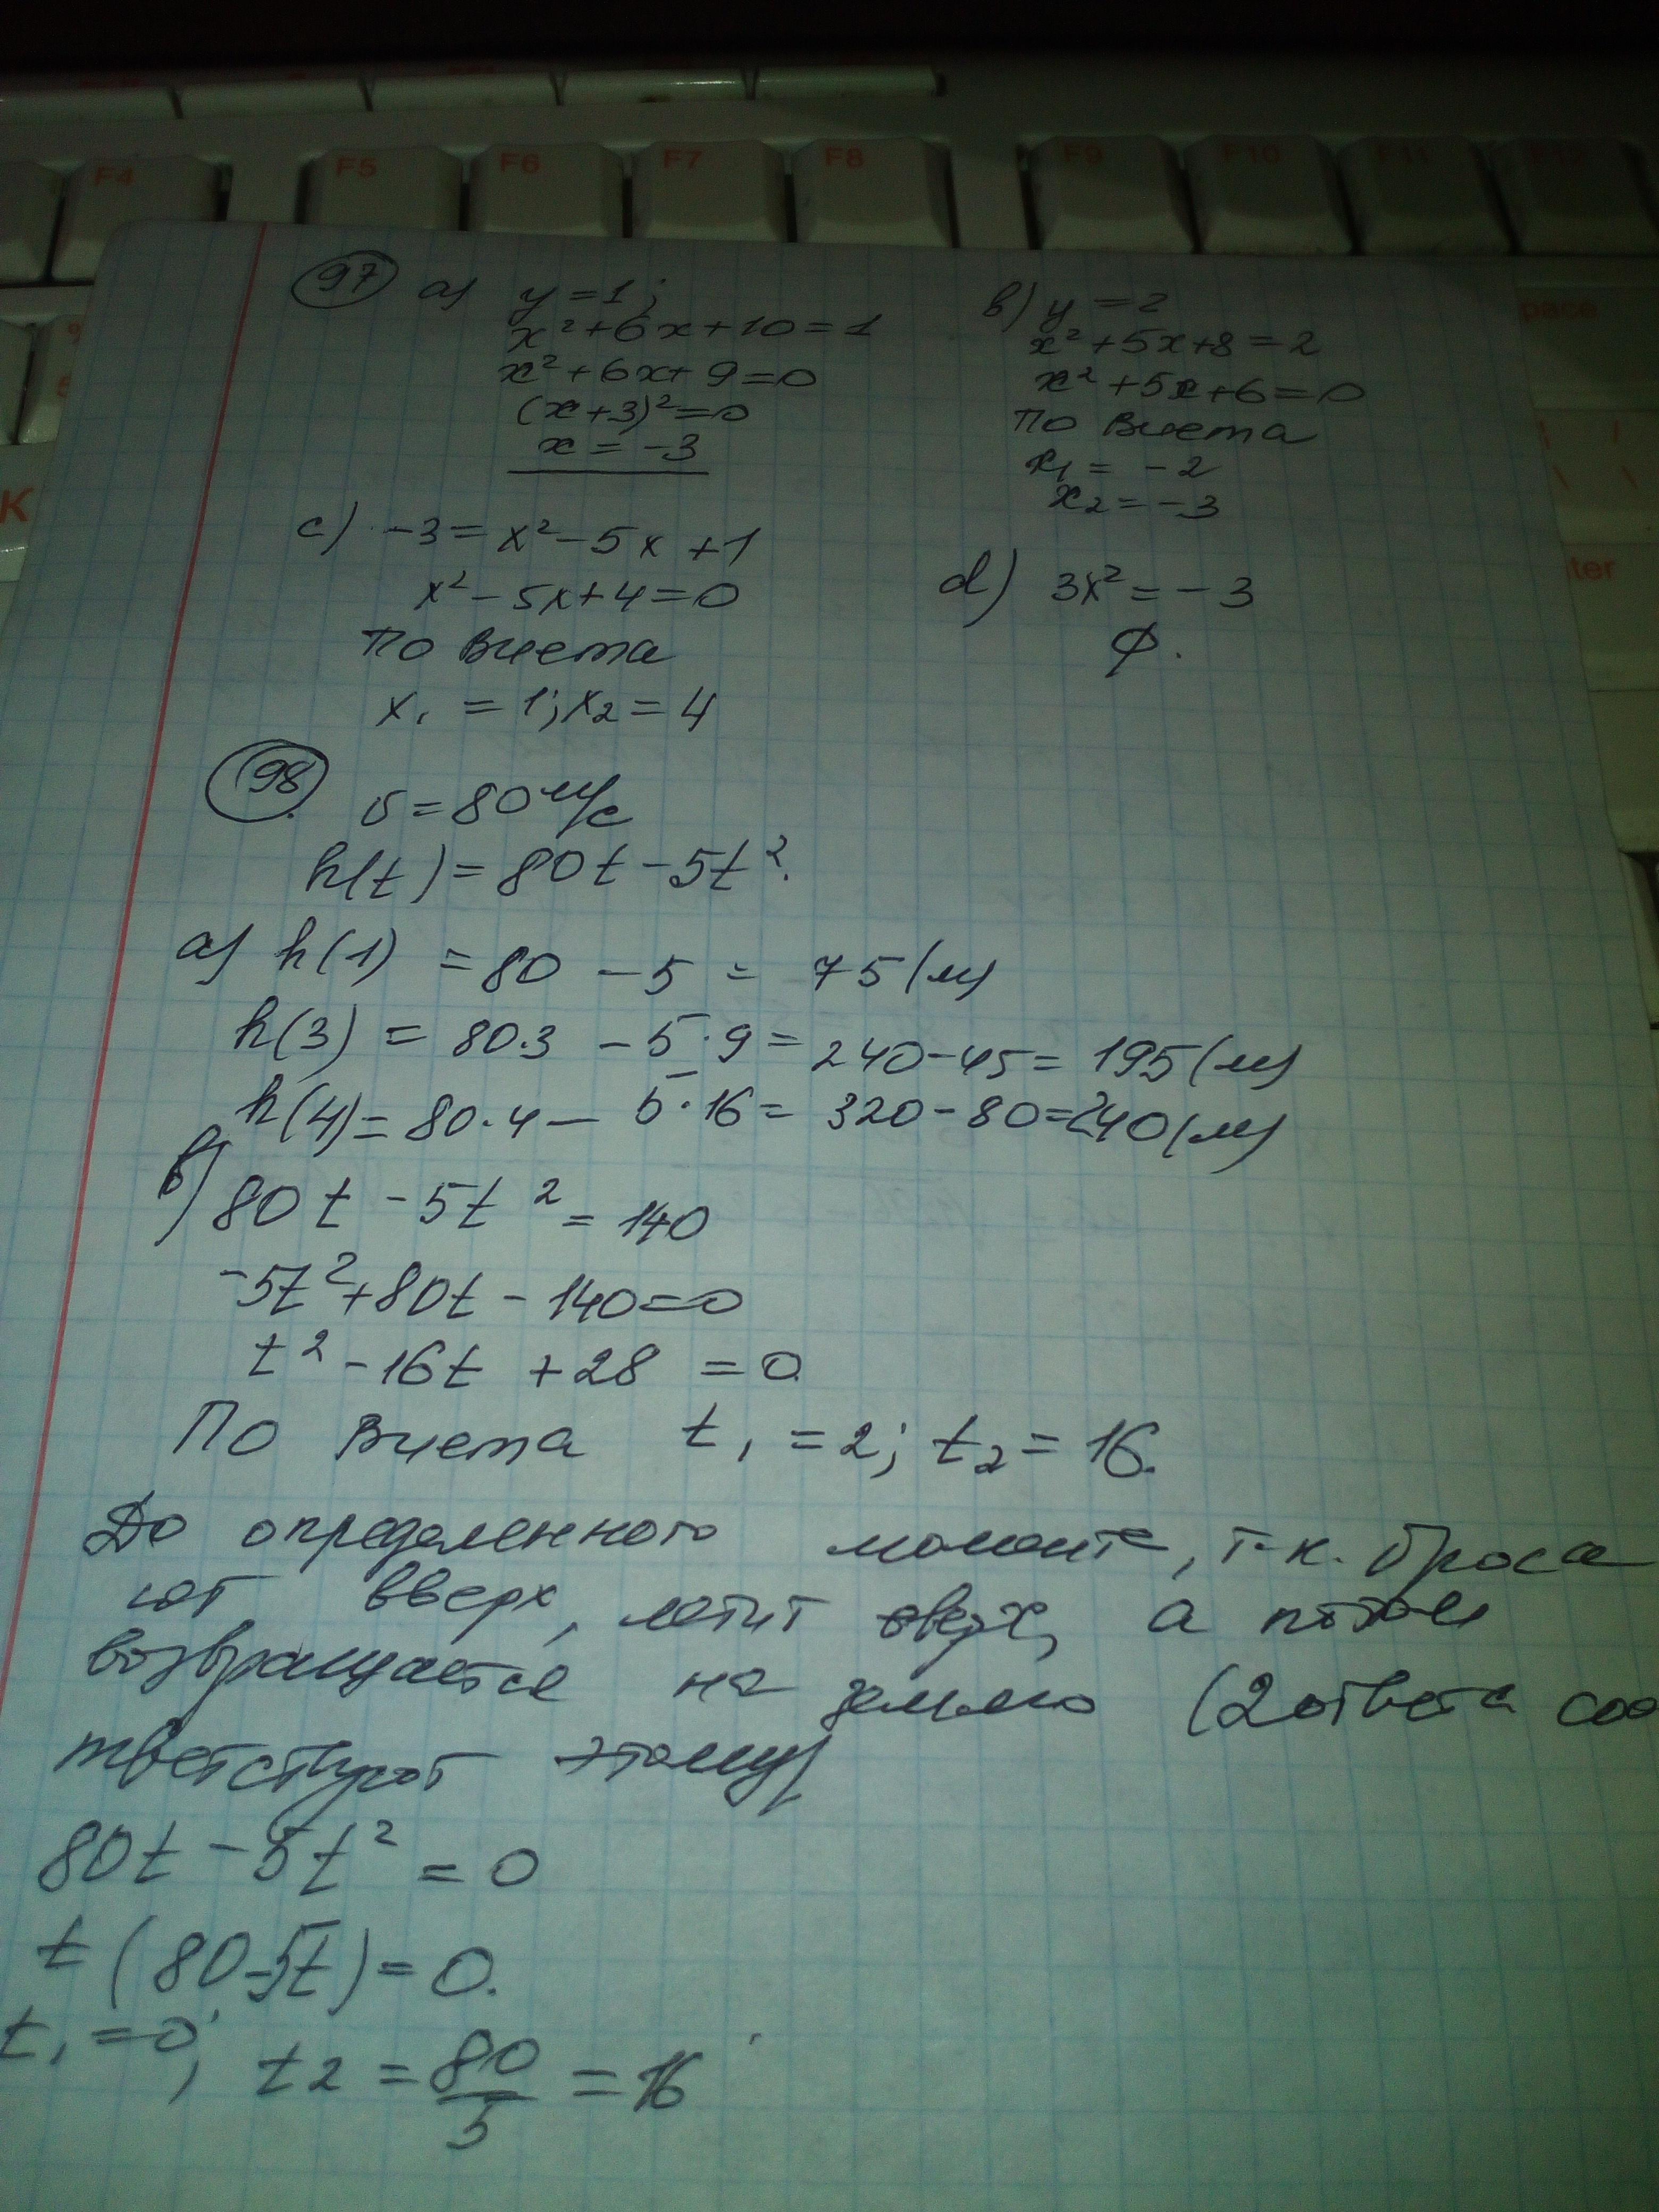 F4 F5 F6 F7 F8 F9 F10 F11 F12
pace
K
ter
97 а) y = 1;
x² + 6x + 10 = 1
x² + 6x + 9 = 0
(x + 3)² = 0
x = -3
в) y = 2
x² + 5x + 8 = 2
x² + 5x + 6 = 0
По Виета
x₁ = -2
x₂ = -3
c) -3 = x² - 5x + 1
x² - 5x + 4 = 0
По Виета
x₁ = 1; x₂ = 4
d) 3x² = -3
∅.
98. υ = 80 м/с
h(t) = 80t - 5t².
а) h(1) = 80 - 5 = 75 (м)
h(3) = 80·3 - 5·9 = 240 - 45 = 195 (м)
h(4) = 80·4 - 5·16 = 320 - 80 = 240 (м)
в) 80t - 5t² = 140
-5t² + 80t - 140 = 0
t² - 16t + 28 = 0
По Виета t₁ = 2; t₂ = 16.
До определенного момента, т.к. броса
ют вверх, летит вверх, а потом
возвращается на землю (2 ответа соо
тветствуют этому)
80t - 5t² = 0
t(80 - 5t) = 0.
t₁ = 0; t2 = 80/5 = 16